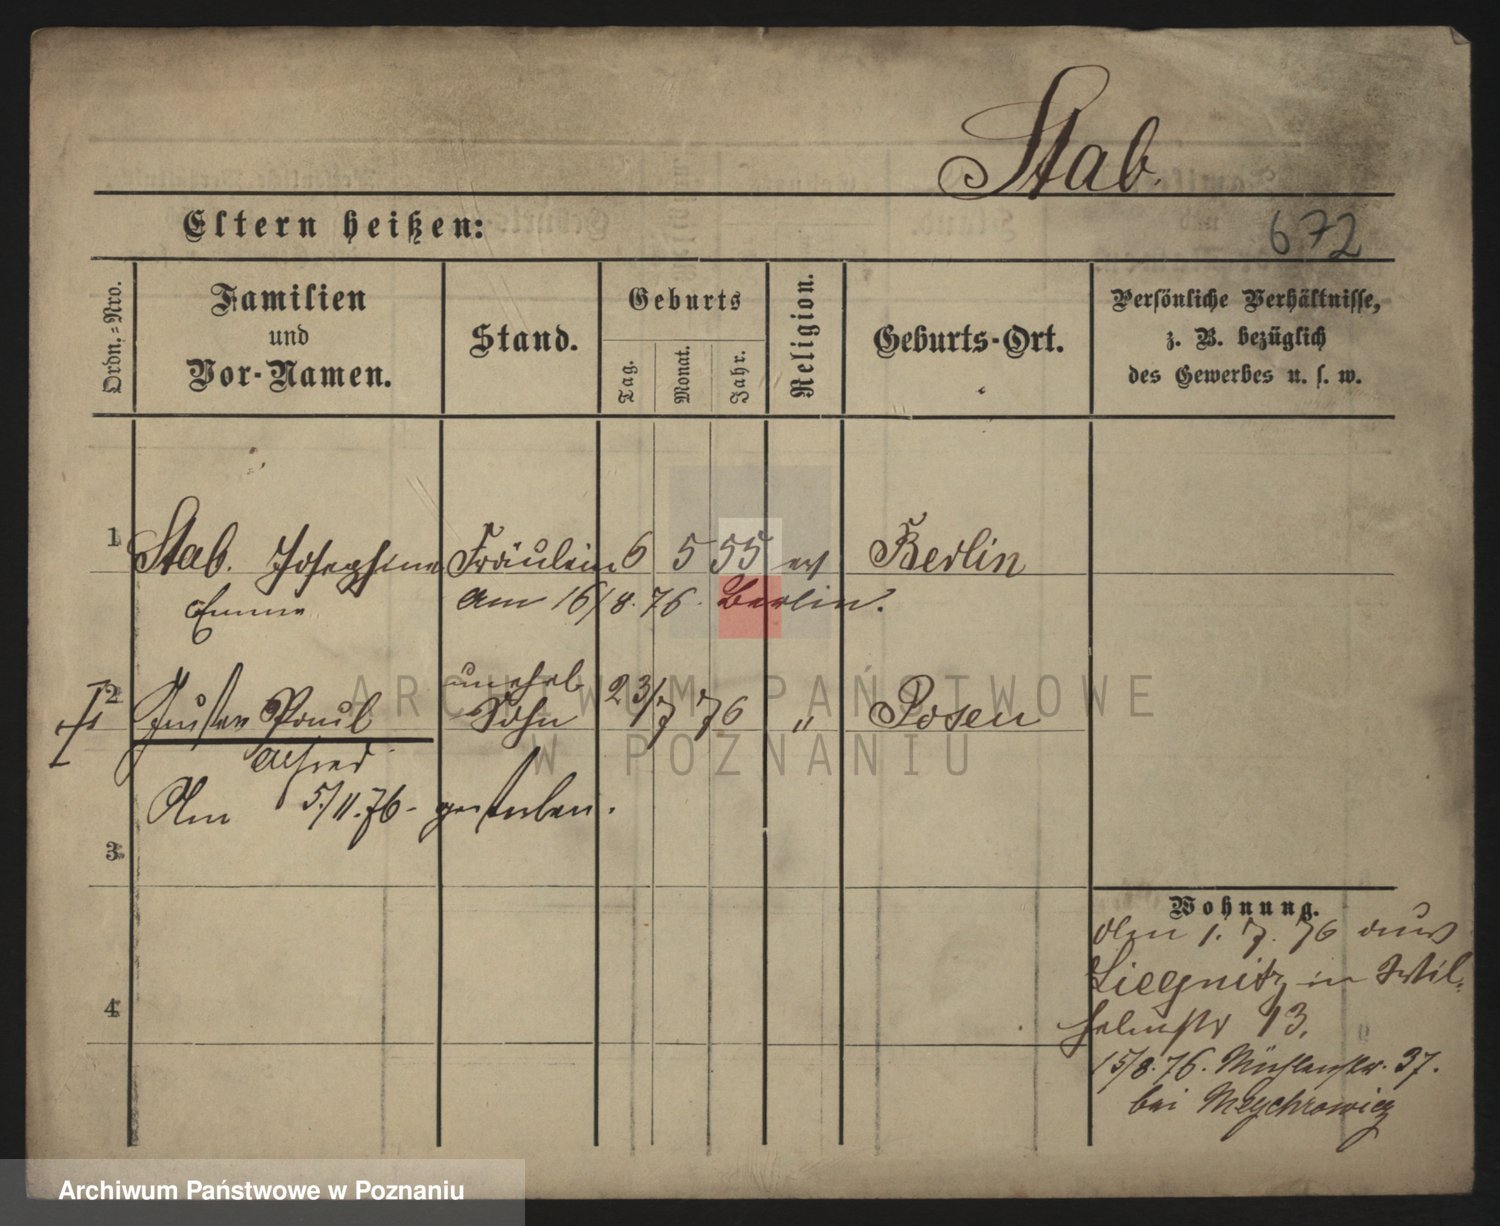 Stab.
Eltern heißen:
672
Ordn.=Nro.
Familien
und
Vor-Namen.
Stand.
Geburts
Tag.
Monat.
Jahr.
Religion.
Geburts-Ort.
Persönliche Verhältnisse,
z. B. bezüglich
des Gewerbes u. s. w.
1 Stab. Josephine Fräulein 6 5 55 ev Berlin
Emma Am 16/8.76. Berlin.
unehel
2 Paul Sohn 23/7 76 " Posen
Alfred
Am 5./11.76- gestorben.
3
4
Wohnung.
Am 1. 7. 76 aus
Liegnitz in Wil-
helmstr 13.
15/8.76. Mühlenstr. 37.
bei
ARCHIWUM PAŃSTWOWE
W POZNANIU
Archiwum Państwowe w Poznaniu